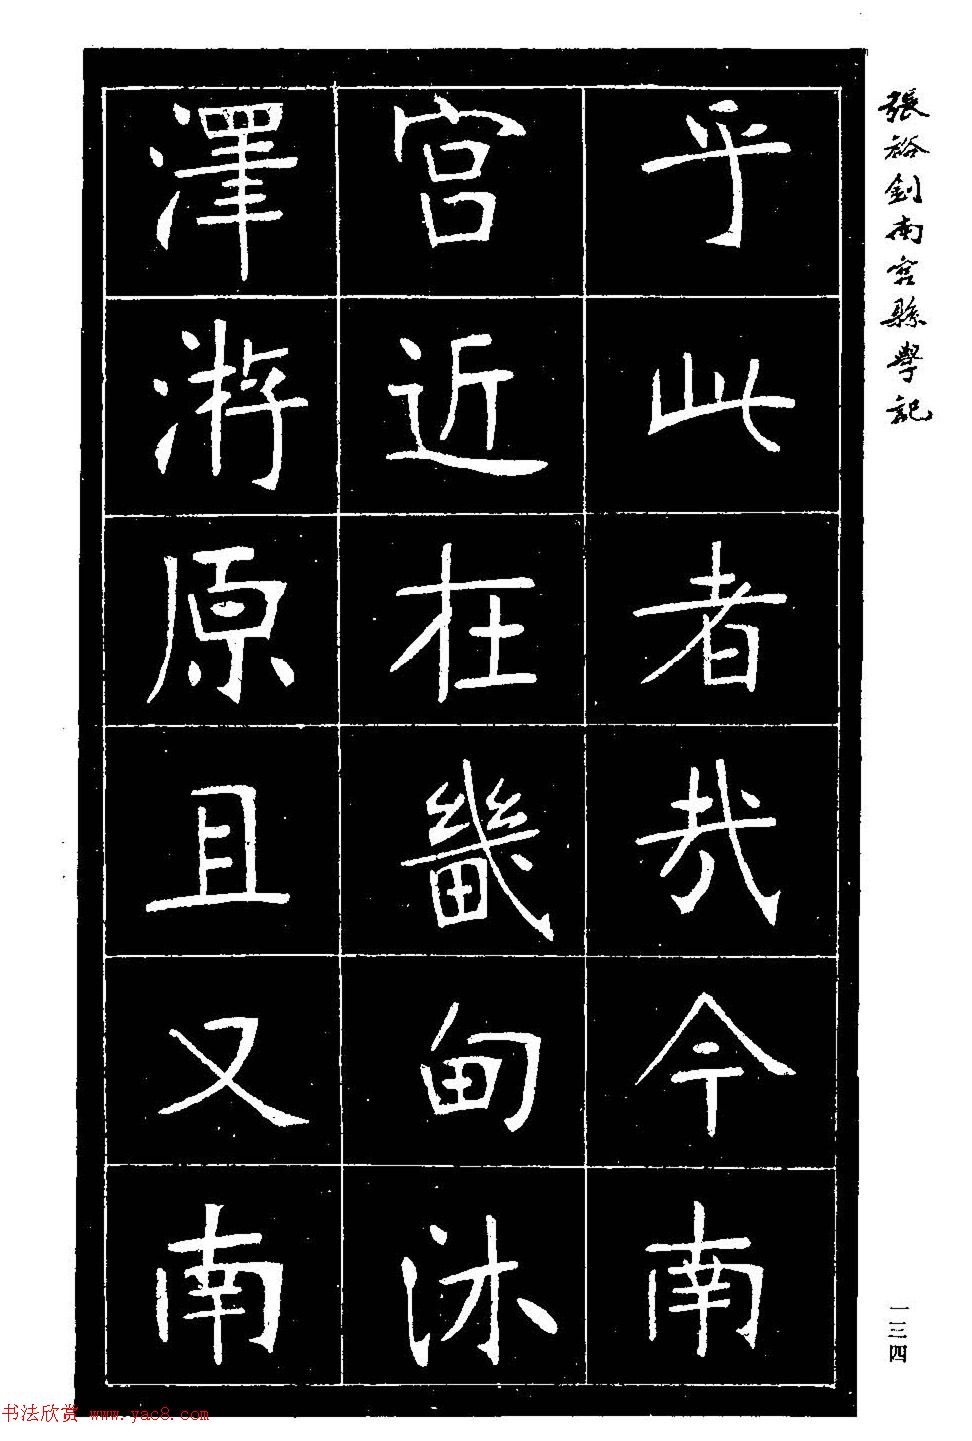 張裕釗南宮縣學記
乎此者哉今南
宮近在畿甸沐
澤游原且又南
一三四
书法欣赏 www.yac8.com